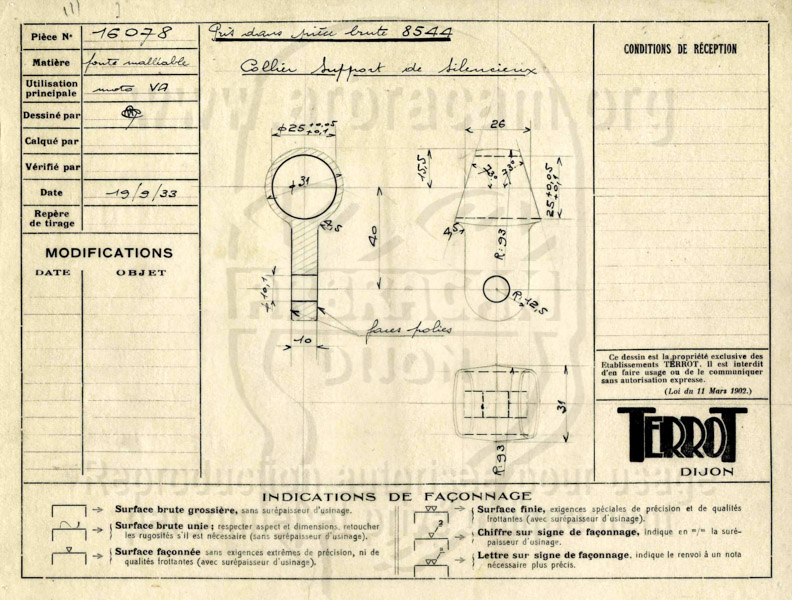 Pièce N° 16078
Pris dans pièce brute 8544
Matière fonte malléable
Collier Support de Silencieux
Utilisation principale moto VA
Dessiné par
Calqué par
Vérifié par
Date 19/9/33
Repère de tirage
MODIFICATIONS
DATE OBJET
CONDITIONS DE RÉCEPTION
ϕ25 +0,05 +0,1
31
4,5
40
10,1
10
faces polies
26
15,5
73° 73°
25 +0,05 +0,1
4,5
R=93
R=12,5
31
R=93
Ce dessin est la propriété exclusive des
Etablissements TERROT. Il est interdit
d'en faire usage ou de le communiquer
sans autorisation expresse.
(Loi du 11 Mars 1902.)
TERROT
DIJON
INDICATIONS DE FAÇONNAGE
Surface brute grossière, sans surépaisseur d'usinage.
Surface brute unie; respecter aspect et dimensions, retoucher
les rugosités s'il est nécessaire (sans surépaisseur d'usinage).
Surface façonnée sans exigences extrêmes de précision, ni de
qualités frottantes (avec surépaisseur d'usinage).
Surface finie, exigences spéciales de précision et de qualités
frottantes (avec surépaisseur d'usinage).
3
Chiffre sur signe de façonnage, indique en m/m la suré-
paisseur d'usinage.
a
Lettre sur signe de façonnage, indique le renvoi à un nota
nécessaire plus précis.
www.arbracam.org
ABRACAM
DIJON
Reproduction autorisée pour usage